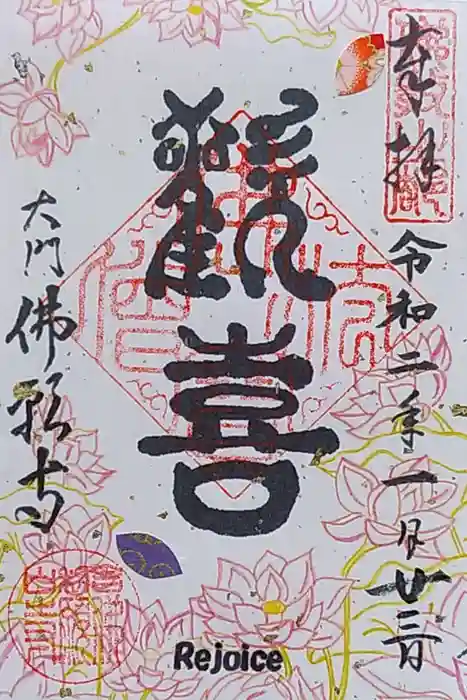 奉拝
令和二年一月廿三日
歡喜
大門
佛願寺
Rejoice